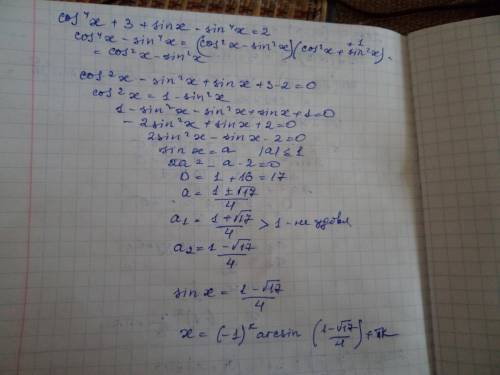 cos⁴x + 3 + sinx - sin⁴x = 2
cos⁴x - sin⁴x = (cos²x - sin²x)(cos²x + sin²x).
1
= cos²x - sin²x
cos²x - sin²x + sinx + 3 - 2 = 0
cos²x = 1 - sin²x
1 - sin²x - sin²x + sinx + 1 = 0
- 2sin²x + sinx + 2 = 0
2sin²x - sinx - 2 = 0
sinx = a |a| ≤ 1
2a² - a - 2 = 0
D = 1 + 16 = 17
a = (1 ± √17)/4
a₁ = (1 + √17)/4 > 1 - не удовл
a₂ = (1 - √17)/4
sinx = (1 - √17)/4
x = (-1)ᵏ arcsin ((1 - √17)/4) + πk